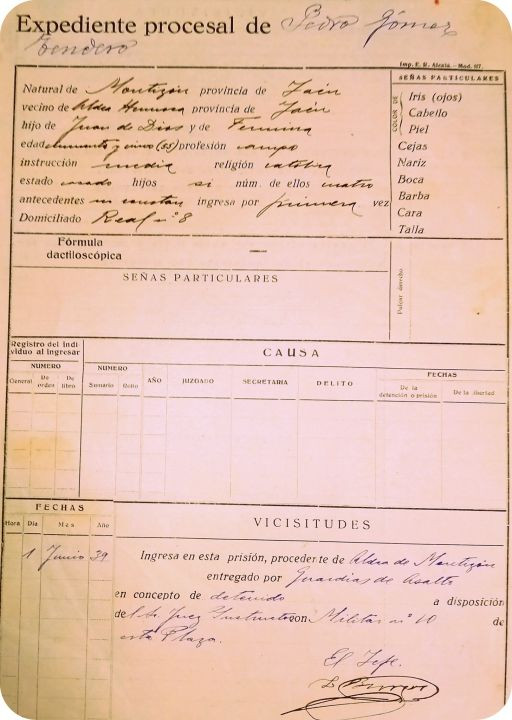 Expediente procesal de Pedro Gómez
Tendero
Imp. E. R. Alcalá. - Mod. 117.
Natural de Montizón provincia de Jaén
vecino de Aldea Hermosa provincia de Jaén
hijo de Juan de Dios y de Fermina
edad cincuenta y cinco (55) profesión campo
instrucción media religión católica
estado casado hijos si núm. de ellos cuatro
antecedentes no constan ingresa por primera vez
Domiciliado Real nº 8
SEÑAS PARTICULARES
COLOR DE
Iris (ojos)
Cabello
Piel
Cejas
Nariz
Boca
Barba
Cara
Talla
Fórmula
dactiloscópica —
SEÑAS PARTICULARES
Pulgar derecho
Registro del indi
viduo al ingresar
NUMERO
General De orden De libro
CAUSA
NUMERO
Sumario Rollo
AÑO JUZGADO SECRETARIA DELITO
FECHAS
De la
detención o prisión De la libertad
FECHAS
Hora Día Mes Año
1 Junio 39
VICISITUDES
Ingresa en esta prisión, procedente de Aldea de Montizón
entregado por Guardias de Asalto
en concepto de detenido a disposición
del Sr. Juez Instructor con Militar nº 10 de
esta Plaza.
El Jefe.